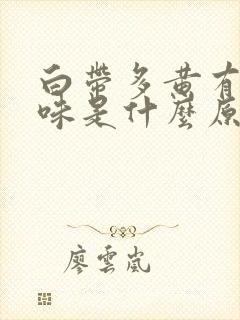 白帶多黄有
味是什麼原
廖雲嵐